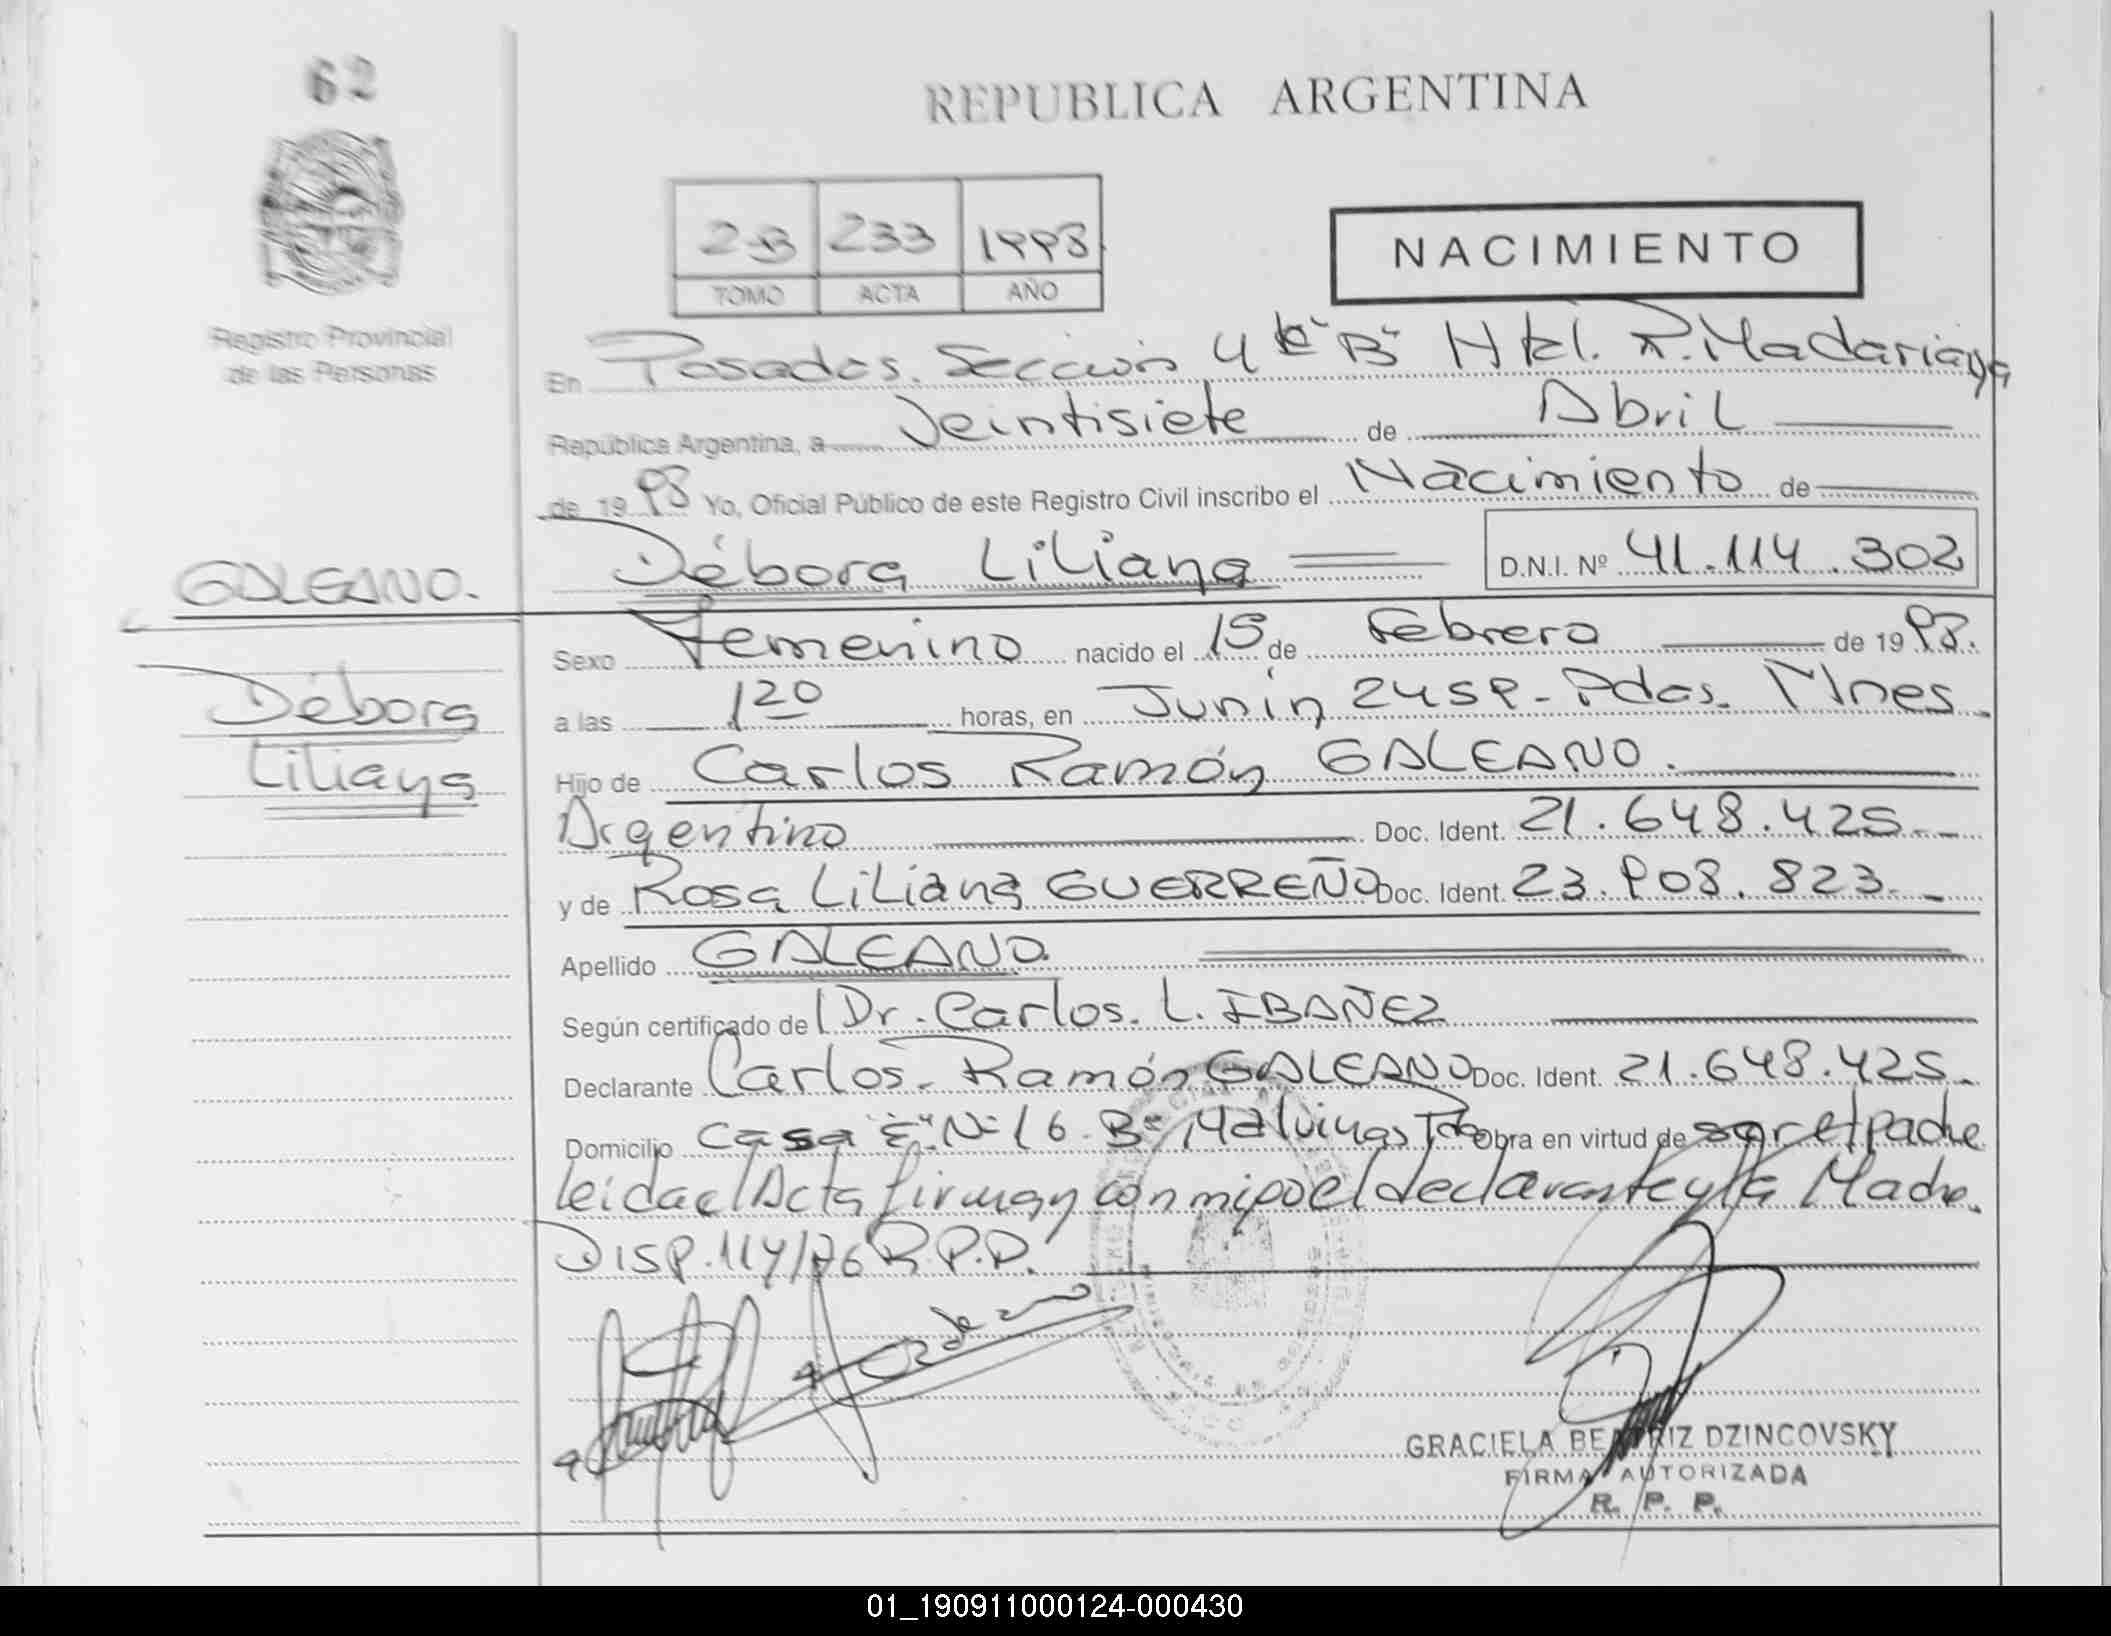 62
REPUBLICA ARGENTINA
2-B 233 1998
TOMO ACTA AÑO
NACIMIENTO
Registro Provincial
de las Personas
En Posadas. Sección 4 "B" Htal. R. Madariaga
República Argentina, a Veintisiete de Abril
de 1998 Yo, Oficial Público de este Registro Civil inscribo el Nacimiento de
GALEANO. Débora Liliana D.N.I. Nº 41.114.302
Sexo Femenino nacido el 15 de Febrero de 1998.
Débora
a las 1 20 horas, en Junín 2459 - Pdas. Mnes.
Liliana
Hijo de Carlos Ramón GALEANO.
Argentino Doc. Ident. 21.648.425.-
y de Rosa Liliana GUERREÑO Doc. Ident. 23.908.823.-
Apellido GALEANO.
Según certificado de Dr. Carlos. L. IBAÑEZ
Declarante Carlos. Ramón GALEANO Doc. Ident. 21.648.425.
Domicilio Casa "E" Nº 16 Bº Malvinas Obra en virtud de ser el padre
leida el Acta firman con migo el declarante y la Madre.
DISP. 114/76 R.P.P.
GRACIELA BEATRIZ DZINCOVSKY
FIRMA AUTORIZADA
R. P. P.
01_190911000124-000430